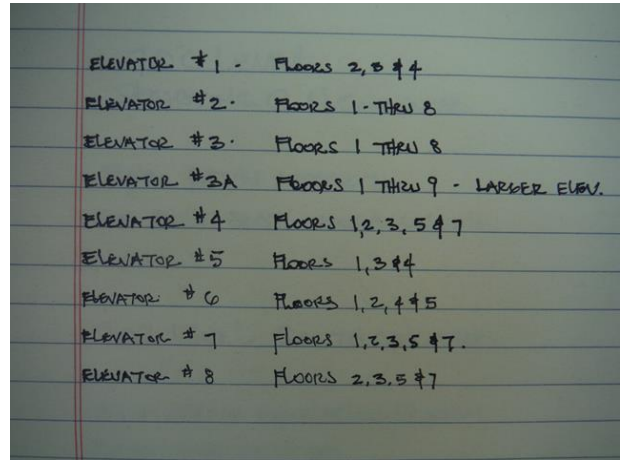 ELEVATOR #1 - FLOORS 2, 3 & 4
ELEVATOR #2. FLOORS 1 - THRU 8
ELEVATOR #3. FLOORS 1 THRU 8
ELEVATOR #3A FLOORS 1 THRU 9 - LARGER ELEV.
ELEVATOR #4 FLOORS 1,2,3,5 & 7
ELEVATOR #5 FLOORS 1,3 & 4
ELEVATOR #6 FLOORS 1,2,4 & 5
ELEVATOR #7 FLOORS 1,2,3,5 & 7.
ELEVATOR #8 FLOORS 2,3,5 & 7